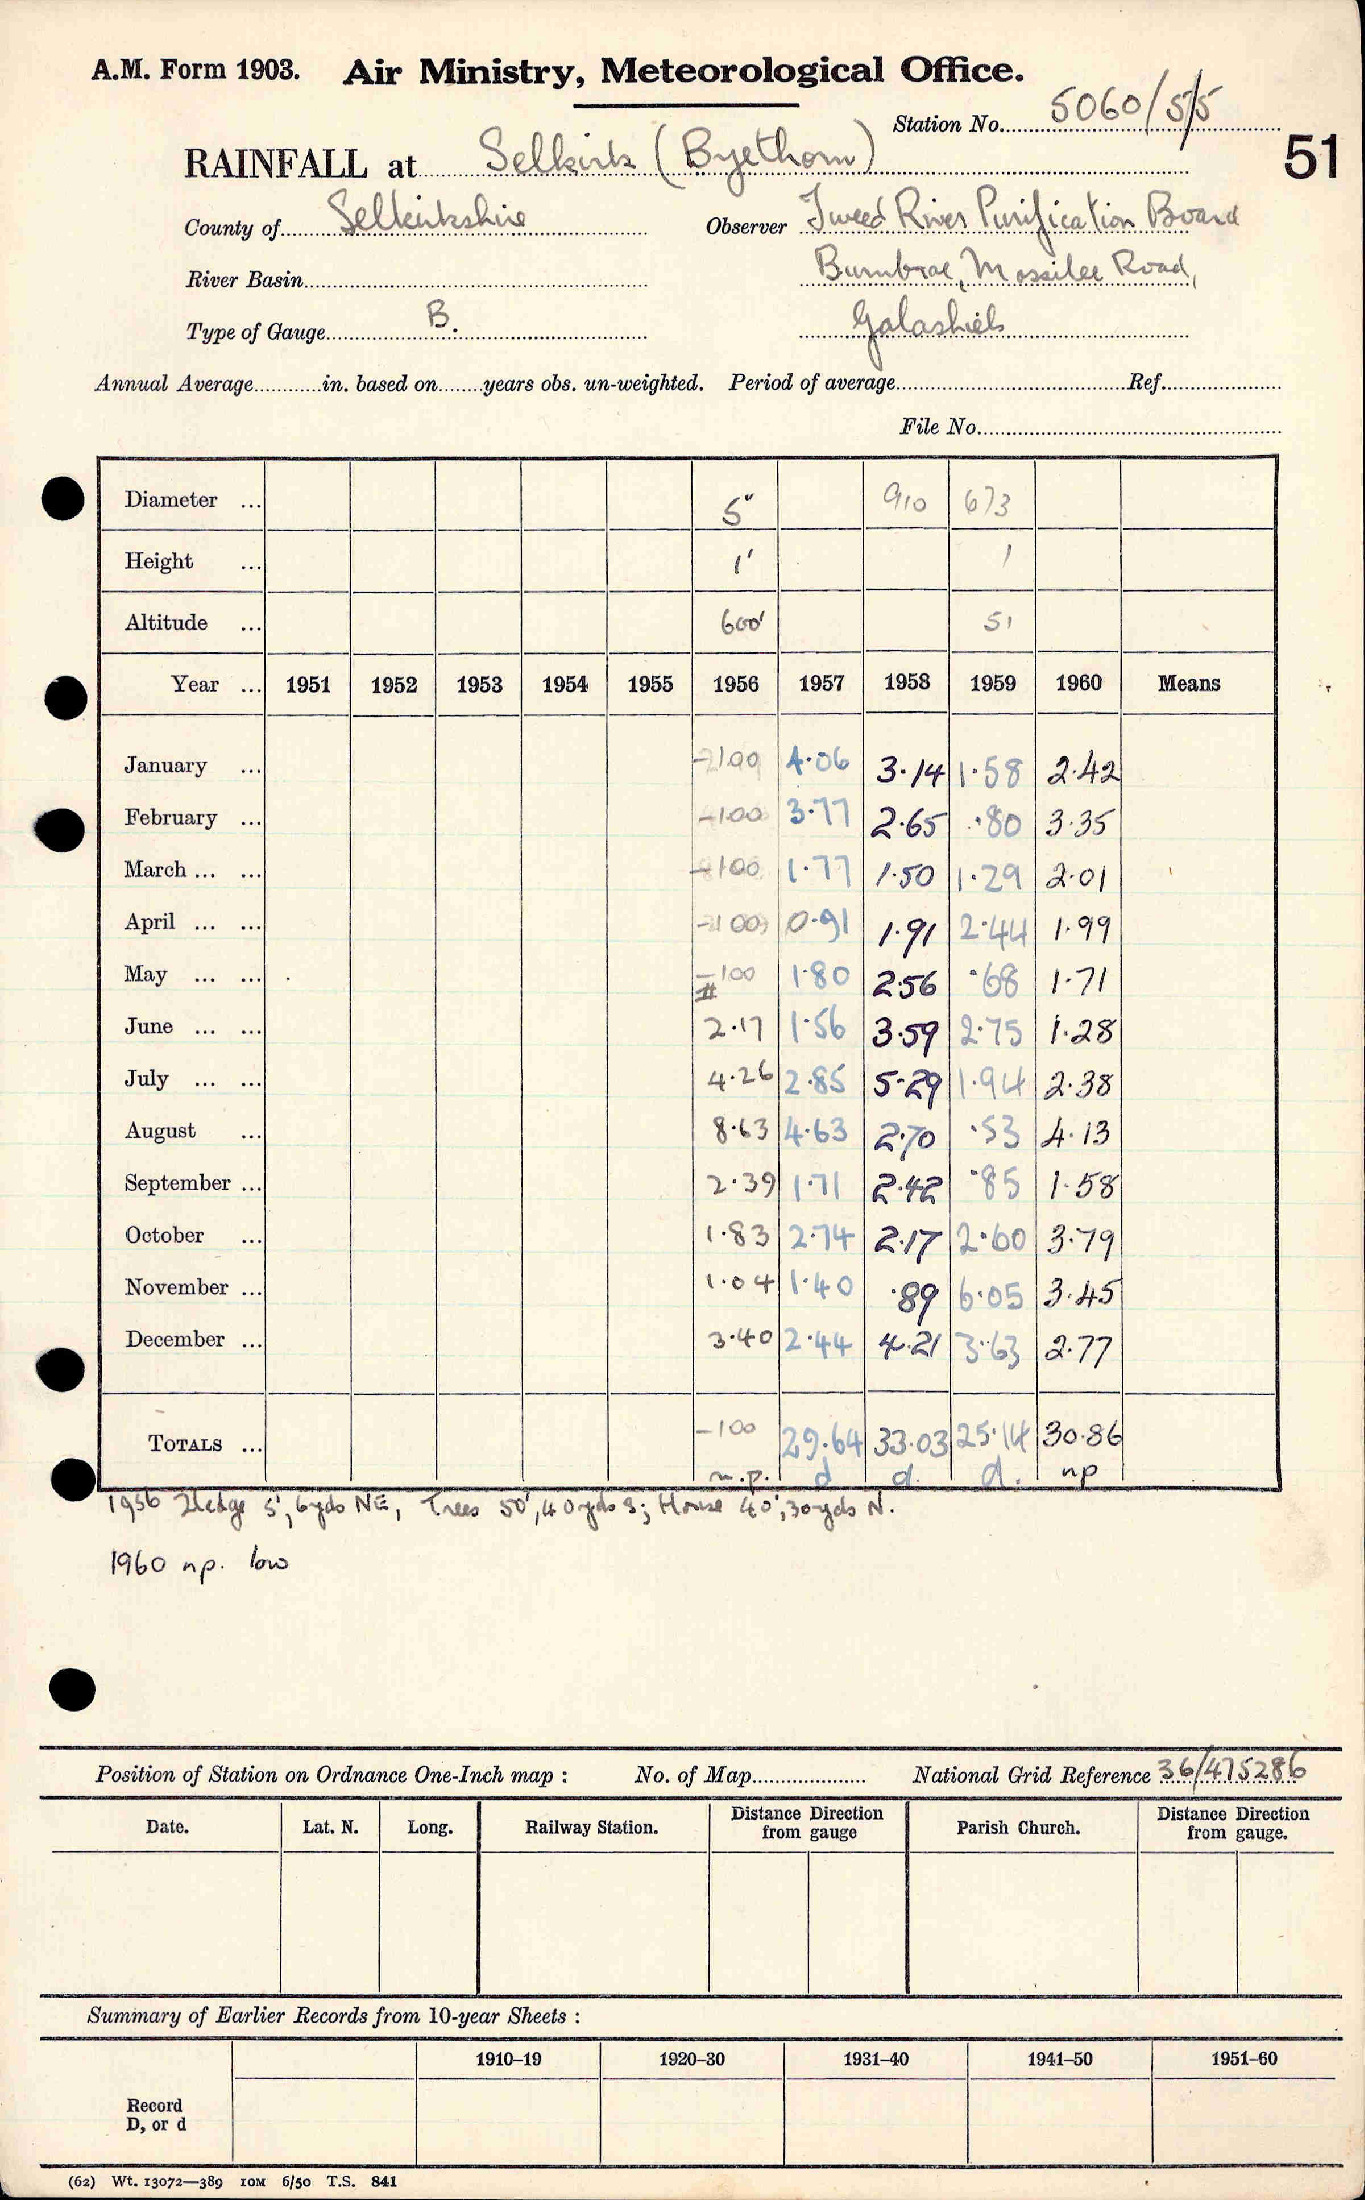 A.M. Form 1903. Air Ministry, Meteorological Office.
Station No. 5060/5/5
51
RAINFALL at Selkirk (Byethorn)
County of Selkirkshire Observer Tweed River Purification Board
River Basin Burnbrae, Mossilee Road,
Type of Gauge B. Galashiels
Annual Average in. based on years obs. un-weighted. Period of average Ref.
File No.
Diameter ... 5" 910 673
Height ... 1' 1
Altitude ... 600' 51
Year ... 1951 1952 1953 1954 1955 1956 1957 1958 1959 1960 Means
January ... -100 4.06 3.14 1.58 2.42
February ... -100 3.77 2.65 .80 3.35
March ... ... -100 1.77 1.50 1.29 2.01
April ... ... -100 0.91 1.91 2.44 1.99
May ... ... -100 1.80 2.56 .68 1.71
June ... ... 2.17 1.56 3.59 2.75 1.28
July ... ... 4.26 2.85 5.29 1.94 2.38
August ... 8.63 4.63 2.70 .53 4.13
September ... 2.39 1.71 2.42 .85 1.58
October ... 1.83 2.74 2.17 2.60 3.79
November ... 1.04 1.40 .89 6.05 3.45
December ... 3.40 2.44 4.21 3.63 2.77
TOTALS ... -100 29.64 33.03 25.14 30.86
n.p. d d. d. np
1956 Hedge 5', 6yds NE, Trees 50', 40yds S; House 40', 30yds N.
1960 np. low
Position of Station on Ordnance One-Inch map : No. of Map National Grid Reference 36/475286
Date. Lat. N. Long. Railway Station. Distance Direction from gauge Parish Church. Distance Direction from gauge.
Summary of Earlier Records from 10-year Sheets :
1910–19 1920–30 1931–40 1941–50 1951–60
Record
D, or d
(62) Wt. 13072—389 10M 6/50 T.S. 841